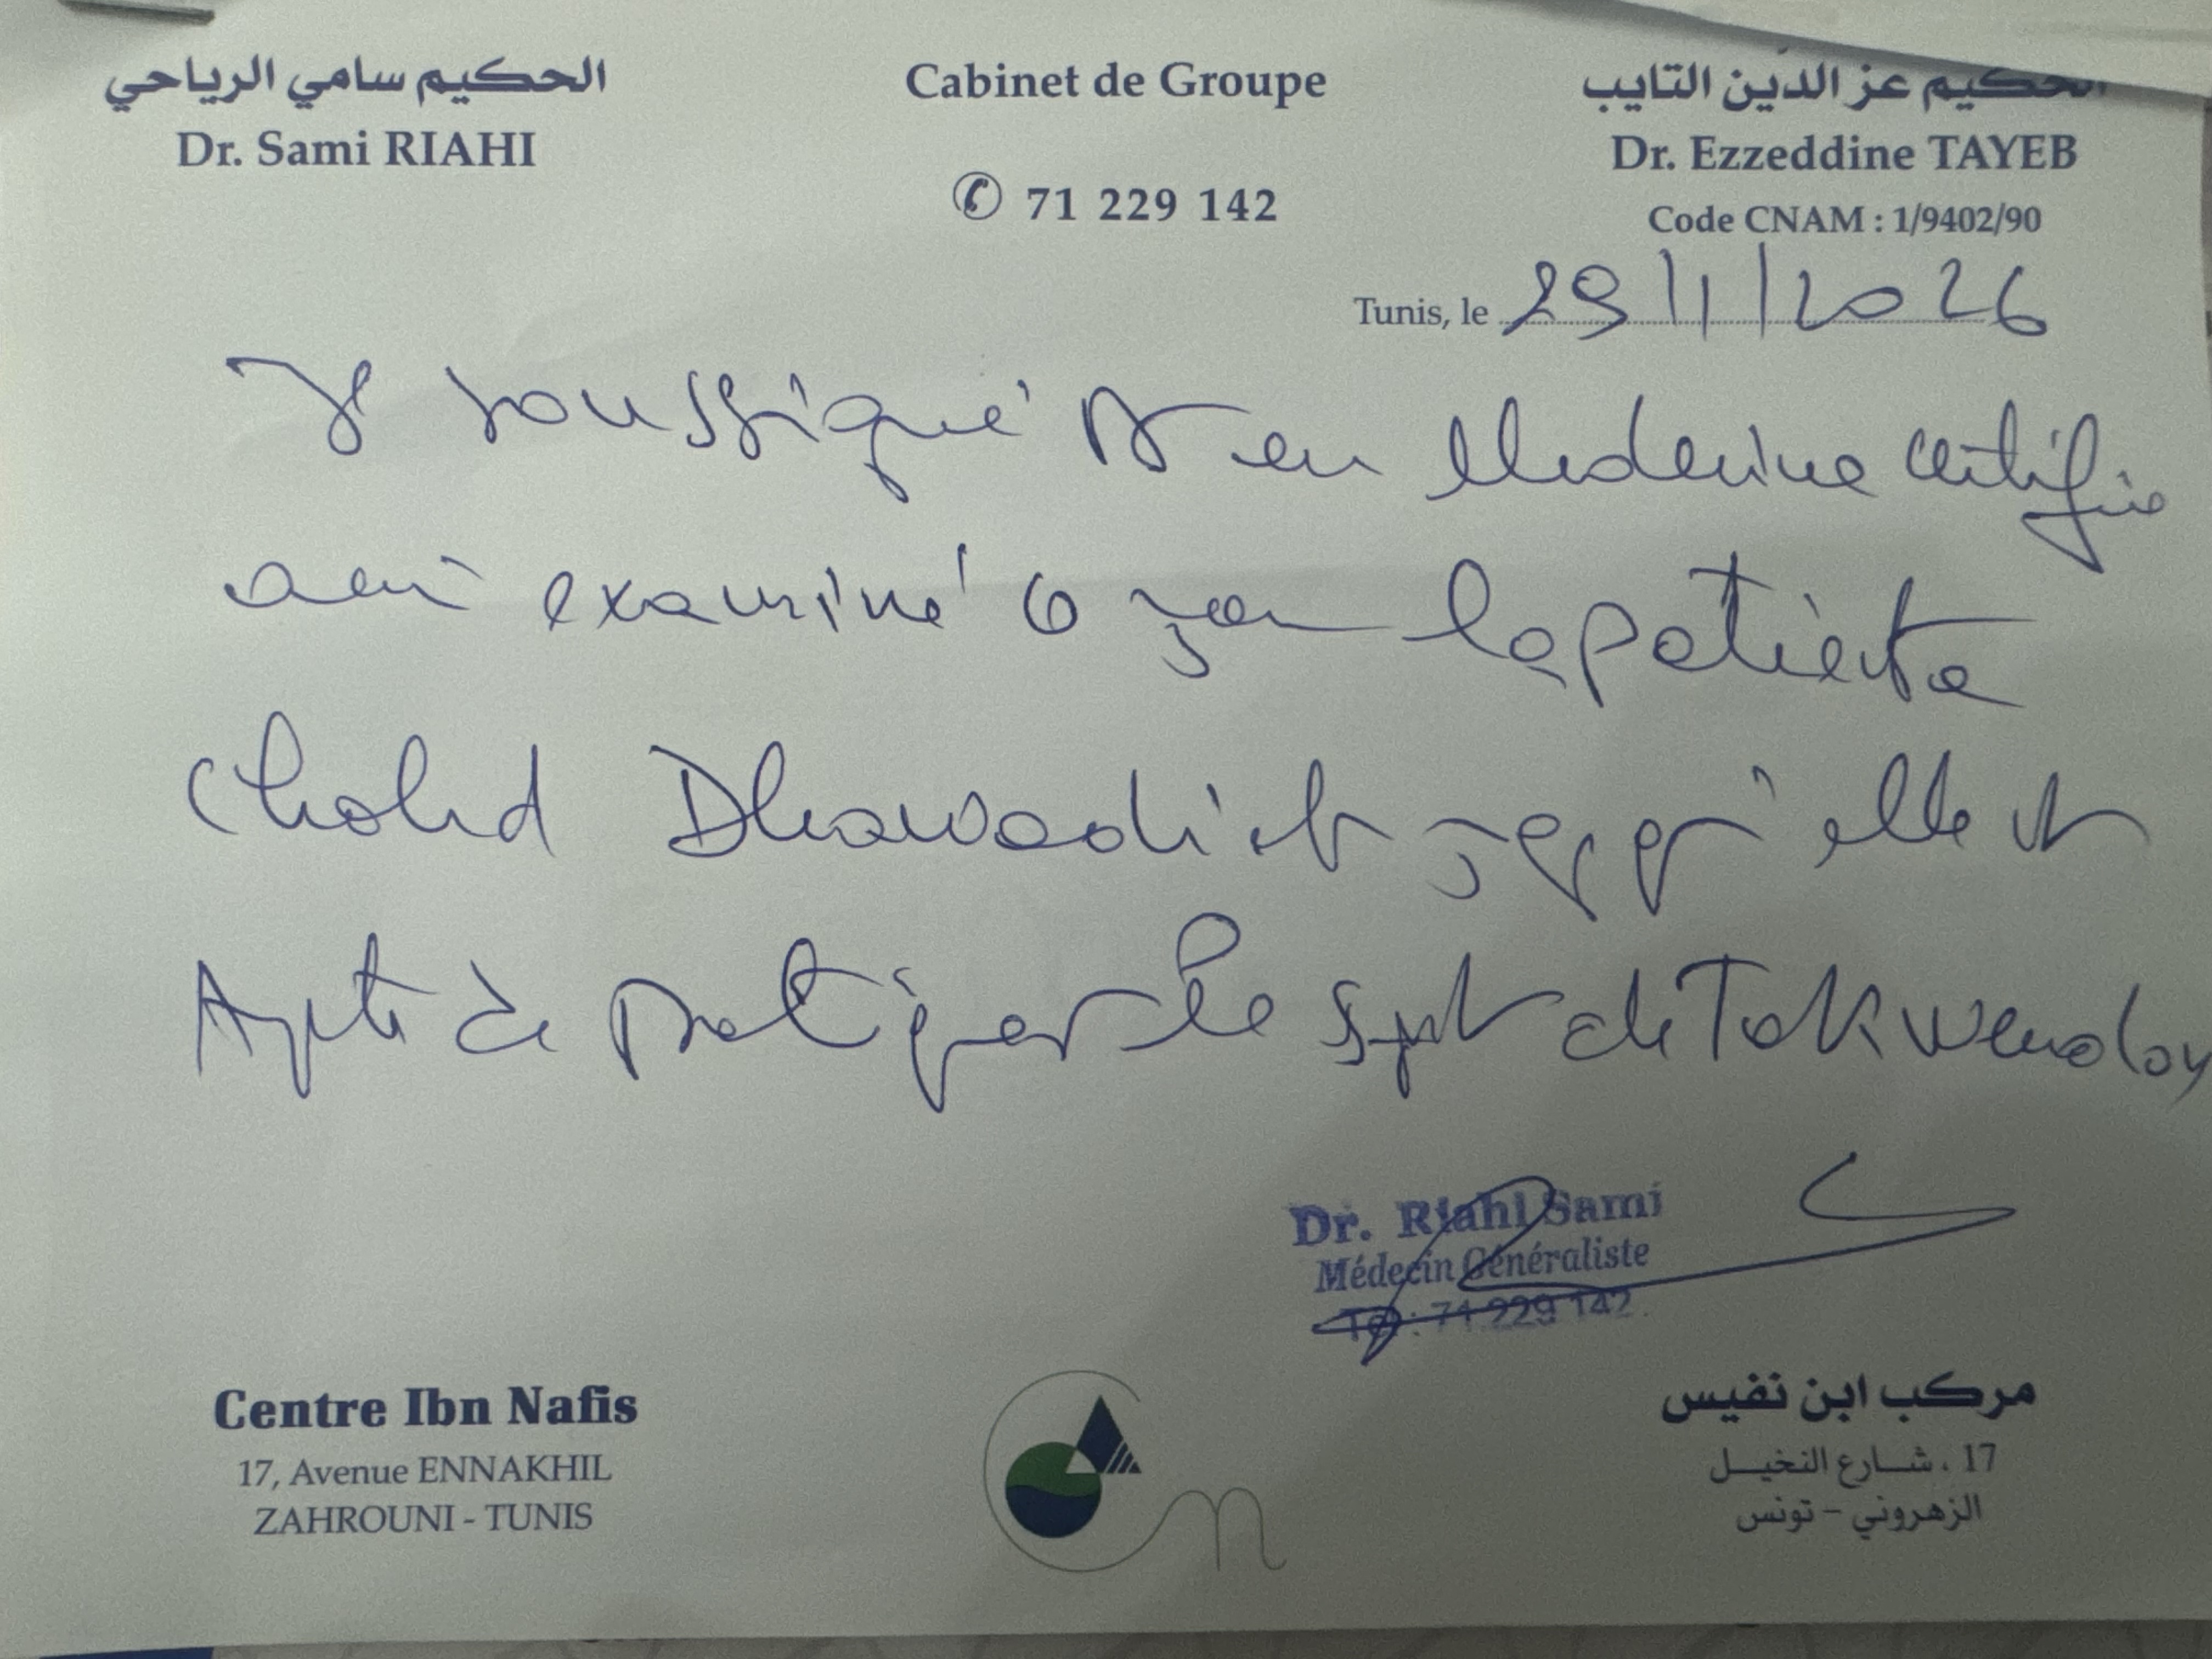 الحكيم سامي الرياحي
Dr. Sami RIAHI
Cabinet de Groupe
✆ 71 229 142
الحكيم عز الدين التايب
Dr. Ezzeddine TAYEB
Code CNAM : 1/9402/90
Tunis, le 29/1/2026
Je soussigné Dr en Medecine certifie
avoir examiné ce jour la patiente
Dhawadi et qu'elle est
Apte à pratiquer le sport de
Dr. Riahi Sami
Médecin Généraliste
Tel : 71 229 142
Centre Ibn Nafis
17, Avenue ENNAKHIL
ZAHROUNI - TUNIS
مركب ابن نفيس
17 ، شارع النخيل
الزهروني - تونس